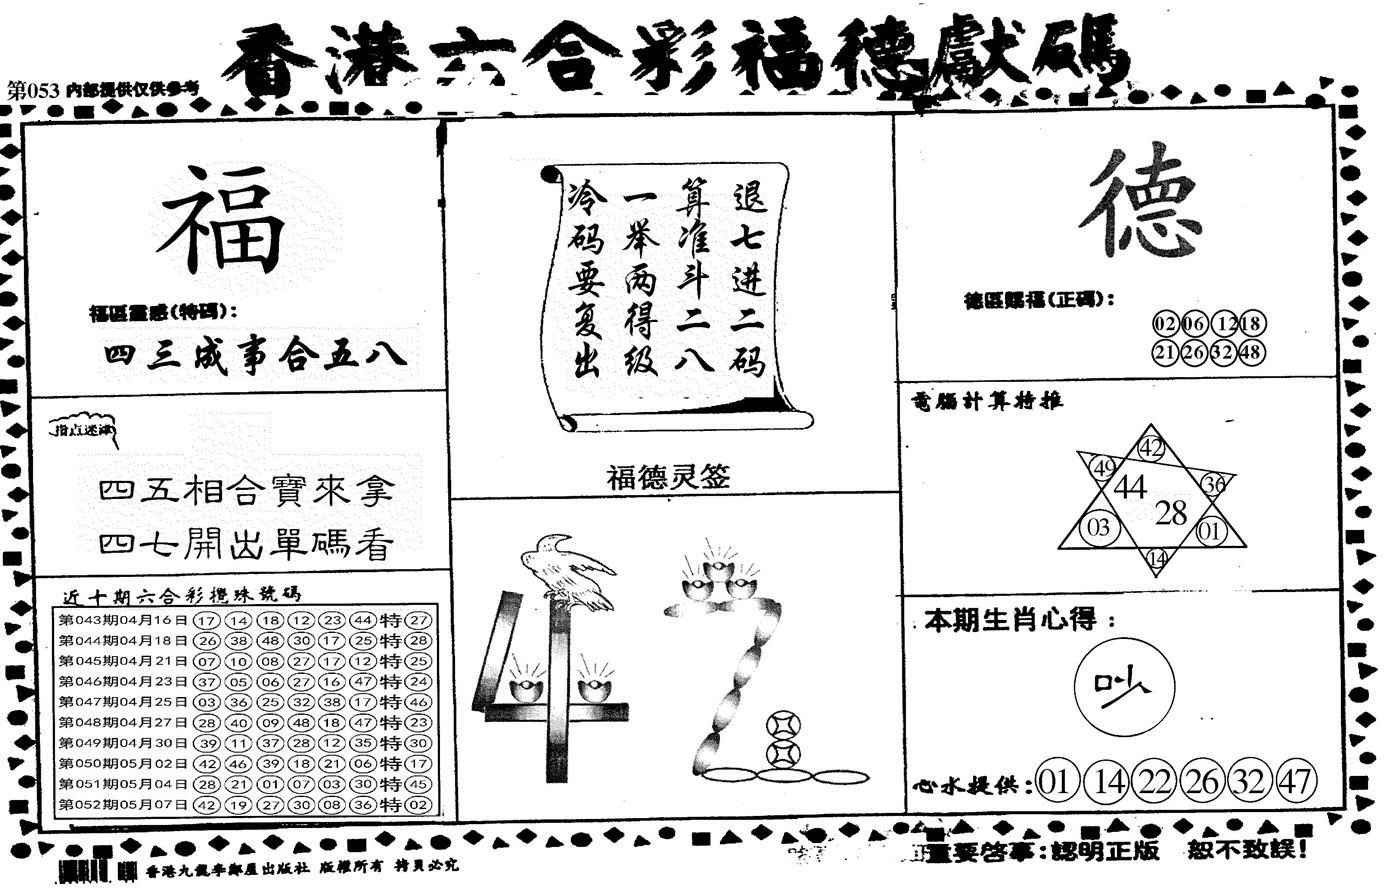 香港六合彩福德獻碼
第053 内部提供仅供参考
福
福區靈感(特碼):
四三成事合五八
指点迷津
四五相合寶來拿
四七開出單碼看
近十期六合彩攪珠號碼
第043期04月16日 17 14 18 12 23 44 特 27
第044期04月18日 26 38 48 30 17 25 特 28
第045期04月21日 07 10 08 27 17 12 特 25
第046期04月23日 37 05 06 27 16 47 特 24
第047期04月25日 03 36 25 32 38 17 特 46
第048期04月27日 28 40 09 48 18 47 特 23
第049期04月30日 39 11 37 28 12 35 特 30
第050期05月02日 42 46 39 18 21 06 特 17
第051期05月04日 28 21 01 07 03 30 特 45
第052期05月07日 42 19 27 30 08 36 特 02
退七进二码
算准斗二八
一举两得级
冷码要复出
福德灵签
德
德區賜福(正碼):
02 06 12 18
21 26 32 48
電腦計算特推
42
49 36
44
28
03 01
14
本期生肖心得:
吵
心水提供:01 14 22 26 32 47
香港九龍李鄭屋出版社 版權所有 拷貝必究
重要啓事:認明正版 恕不致誤!